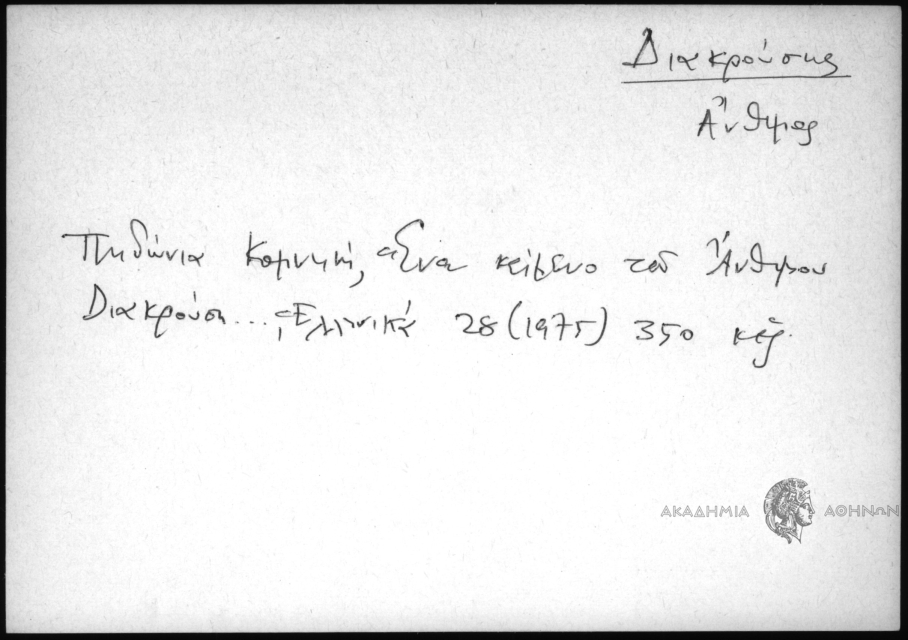 Διακρούσης
Ἄνθιμος
Πηδώνια Κομνηνή, Ἕνα κείμενο τοῦ Ἀνθίμου
Διακρούση... Ἑλληνικά 28 (1975) 350 κἑξ.
ΑΚΑΔΗΜΙΑ ΑΘΗΝΩΝ